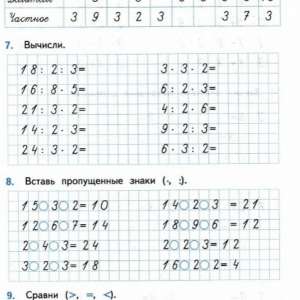 Частное 3 9 3 2 3 3 7 3
7. Вычисли.
18 : 2 : 3 = 3 · 3 · 2 =
16 : 8 · 5 = 6 : 2 · 3 =
21 : 3 · 2 = 4 : 2 · 6 =
14 : 2 · 3 = 9 · 2 : 3 =
24 : 3 · 2 = 6 · 3 : 2 =
8. Вставь пропущенные знаки (·, :).
15○3○2=10 14○2○3=21
12○6○7=14 18○9○6=12
2○4○3=24 2○2○3=12
3○2○3=18 16○2○2=4
9. Сравни (>, =, <).